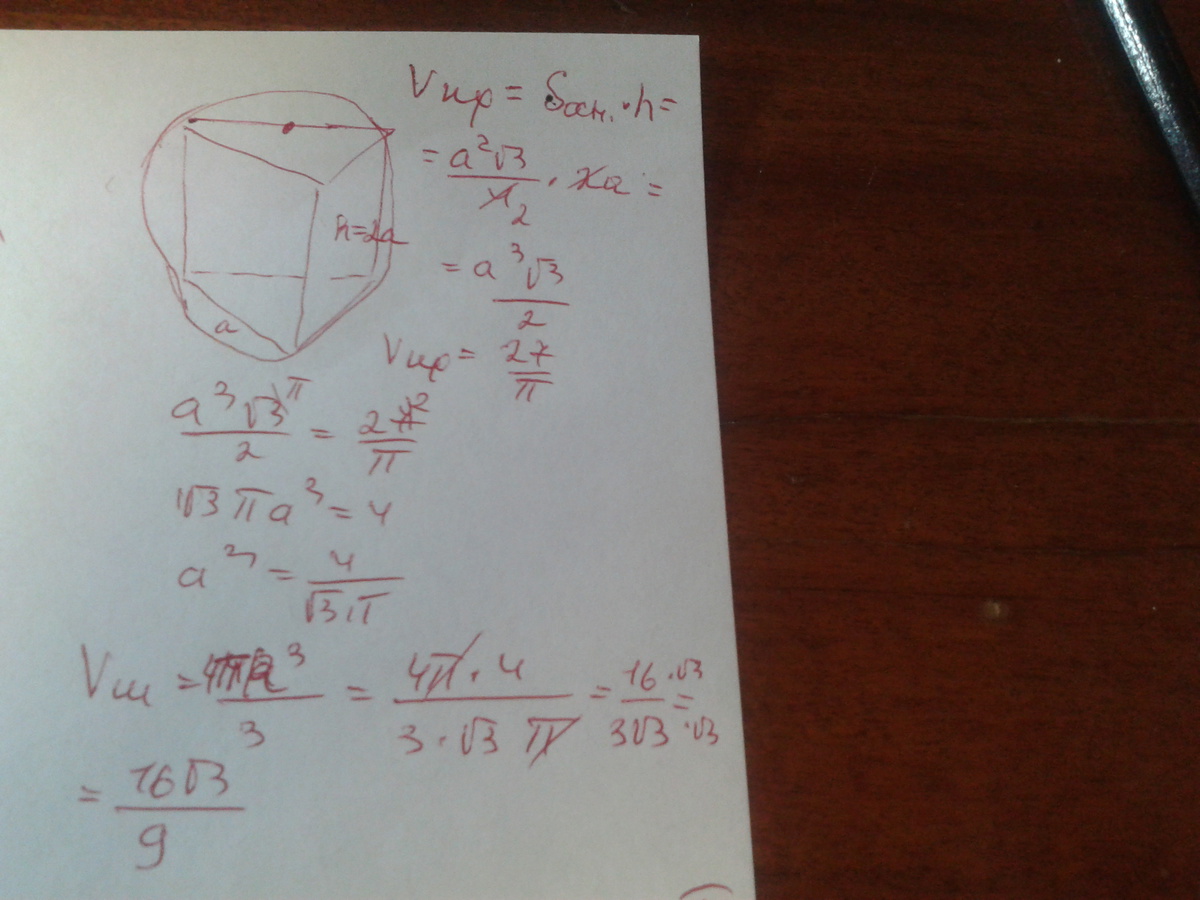 Vпр = Sосн. · h =
= a²√3 / 4 2 · 2a =
h=2a
= a³√3 / 2
a
Vпр = 27 / π
a³√3 π / 2 = 27 2 / π
√3 π a³ = 4
a³ = 4 / √3 · π
Vш = 4πR³ / 3 = 4π · 4 / 3 · √3 π = 16 · √3 / 3√3 · √3 =
= 16√3 / 9